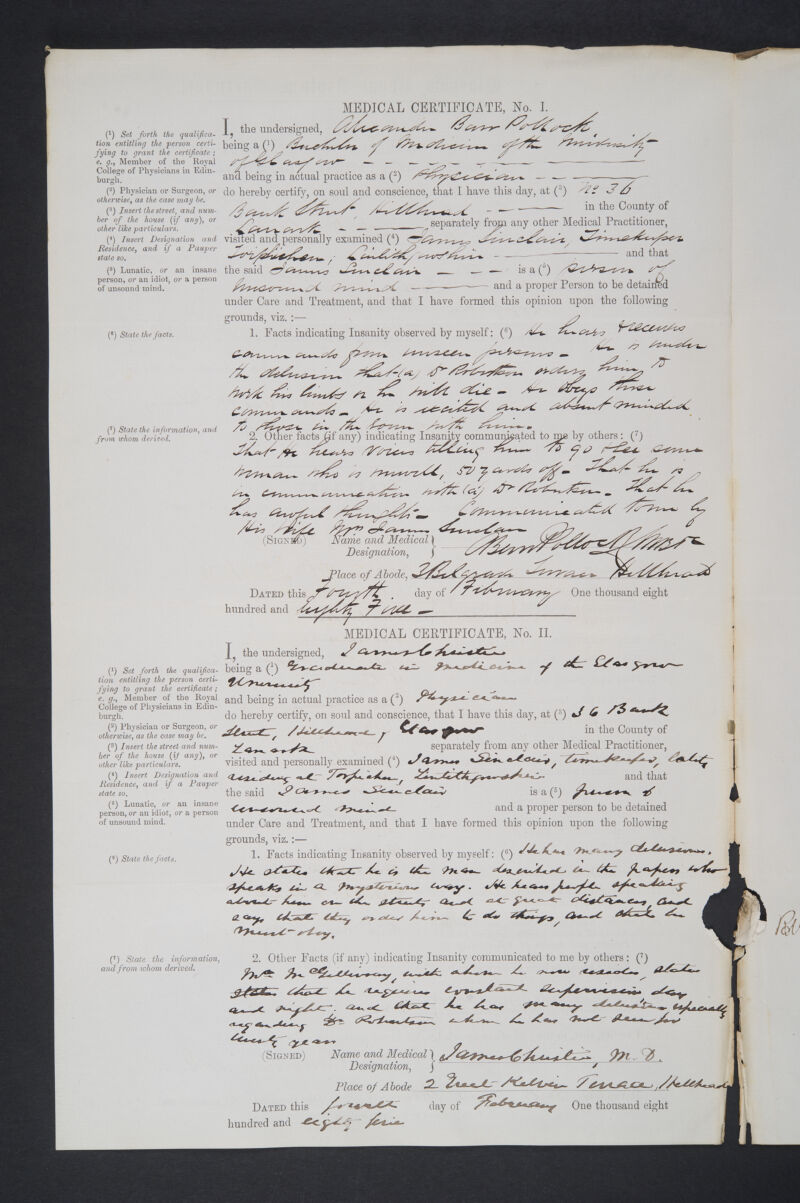 MEDICAL CERTIFICATE, No. I.
(1) Set forth the qualifica-
tion entitling the person certi-
fying to grant the certificate;
e. g., Member of the Royal
College of Physicians in Edin-
burgh.
(2) Physician or Surgeon, or
otherwise, as the case may be.
(3) Insert the street, and num-
ber of the house (if any), or
other like particulars.
(4) Insert Designation and
Residence, and if a Pauper
state so.
(5) Lunatic, or an insane
person, or an idiot, or a person
of unsound mind.
(6) State the facts.
(7) State the information, and
from whom derived.
I, the undersigned, Alexander Barr Pollock
being a (1) Bachelor of Medicine of the University
of Glasgow
and being in actual practice as a (2) Physician
do hereby certify, on soul and conscience, that I have this day, at (3) No 36
Bank Street, Hillhead in the County of
Lanark separately from any other Medical Practitioner,
visited and personally examined (4) James Sinclair, Timekeeper
Torphichen, Linlithgowshire and that
the said James Sinclair is a (5) person of
unsound mind and a proper Person to be detained
under Care and Treatment, and that I have formed this opinion upon the following
grounds, viz. :—
1. Facts indicating Insanity observed by myself: (6) He hears & receives
commands from unseen persons - He is under
the delusion that (a) Dr Robertson orders him to
work his limbs or he will die - He obeys these
commands - He is excited and absent minded
to those in the room with him -
2. Other facts (if any) indicating Insanity communicated to me by others: (7)
That he hears voices telling him to go & see some
woman who is unwell, 50 yards off - That he is
in communication with (a) Dr Robertson - That he
has awful thoughts - Communicated to me by
His Wife Mrs James Sinclair
(SIGNED) Name and Medical Designation, A Barr Pollock
Place of Abode, 3 Belgrave Terrace Hillhead
DATED this Fourth day of February One thousand eight
hundred and eighty Five -
MEDICAL CERTIFICATE, No. II.
(1) Set forth the qualifica-
tion entitling the person certi-
fying to grant the certificate;
e. g., Member of the Royal
College of Physicians in Edin-
burgh.
(2) Physician or Surgeon, or
otherwise, as the case may be.
(3) Insert the street and num-
ber of the house (if any), or
other like particulars.
(4) Insert Designation and
Residence, and if a Pauper
state so.
(5) Lunatic, or an insane
person, or an idiot, or a person
of unsound mind.
(6) State the facts.
(7) State the information,
and from whom derived.
I, the undersigned, James Christie
being a (1) Graduate in Medicine of the Glasgow
University
and being in actual practice as a (2) Physician
do hereby certify, on soul and conscience, that I have this day, at (3) 36 Bank
Street, Hillhead, Glasgow in the County of
Lanark separately from any other Medical Practitioner,
visited and personally examined (4) James Sinclair, timekeeper, lately
residing at Torphichen, Linlithgowshire and that
the said James Sinclair is a (5) person of
unsound mind and a proper person to be detained
under Care and Treatment, and that I have formed this opinion upon the following
grounds, viz. :—
1. Facts indicating Insanity observed by myself: (6) He has many delusions.
He states that he is the man described in the papers who
speaks in a mysterious way. He hears people speaking
about him on the streets and at great distances, and
says that they order him to do things, and that he
must obey.
2. Other Facts (if any) indicating Insanity communicated to me by others: (7)
Mrs McGillivray, with whom he now resides, states
states that he requires constant supervision day
and night; and that he has many delusions especially
regarding Dr Robertson whom he has not seen for
twenty years
(SIGNED) Name and Medical Designation, James Christie, M.D.
Place of Abode 2 Great Kelvin Terrace, Hillhead
DATED this fourth day of February One thousand eight
hundred and eighty five